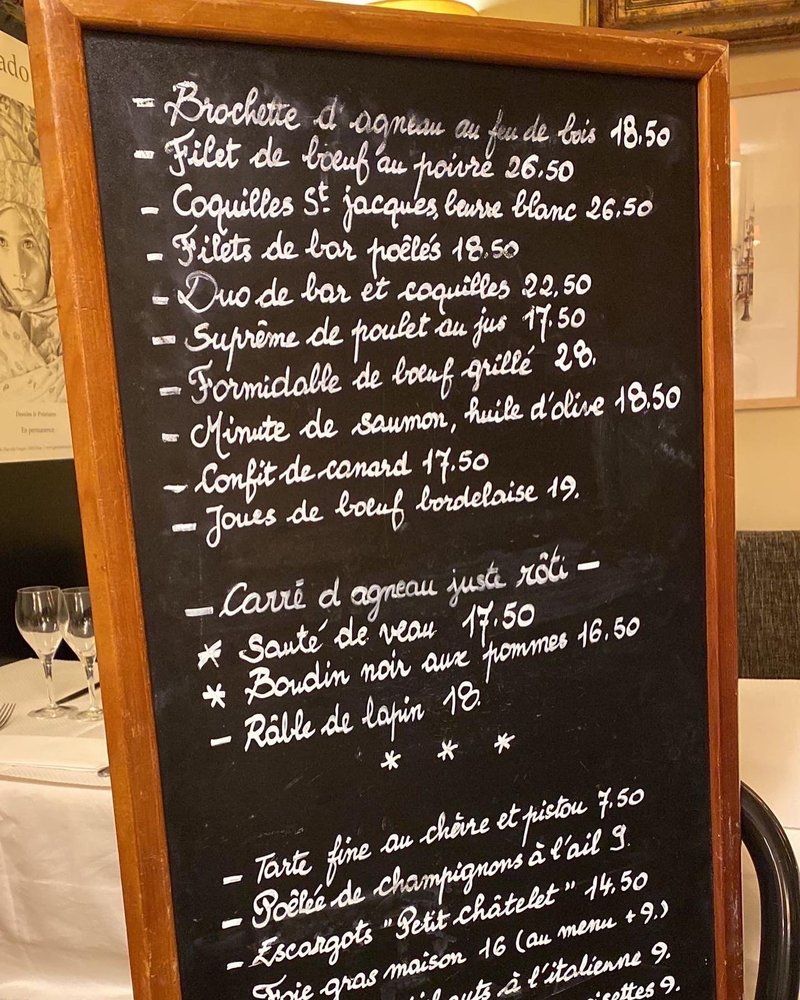 ado
- Brochette d'agneau au feu de bois 18,50
- Filet de bœuf au poivre 26.50
- Coquilles St jacques, beurre blanc 26.50
- Filets de bar poêlés 18.50
- Duo de bar et coquilles 22,50
- Suprême de poulet au jus 17.50
- Formidable de bœuf grillé 28.
- Minute de saumon, huile d'olive 18,50
- Confit de canard 17.50
- Joues de bœuf bordelaise 19.
- Carré d agneau juste rôti -
* Sauté de veau 17.50
* Boudin noir aux pommes 16.50
- Râble de lapin 18.
* * *
- Tarte fine au chèvre et pistou 7.50
- Poêlée de champignons à l'ail 9.
- Escargots "Petit châtelet" 14.50
Foie gras maison 16 (au menu + 9.)
à l'italienne 9.
9.
En permanence